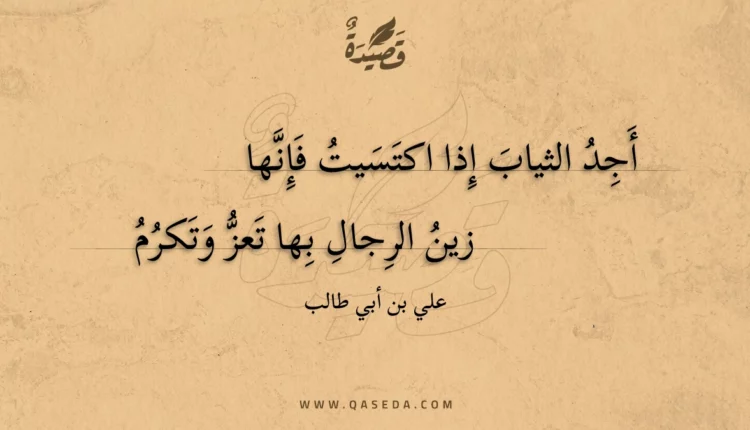 قَصِيْدَةٌ
أَجِدُ الثيابَ إِذا اكتَسَيتُ فَإِنَّها
زينُ الرِجالِ بِها تَعزُّ وَتَكرُمُ
علي بن أبي طالب
WWW.QASEDA.COM